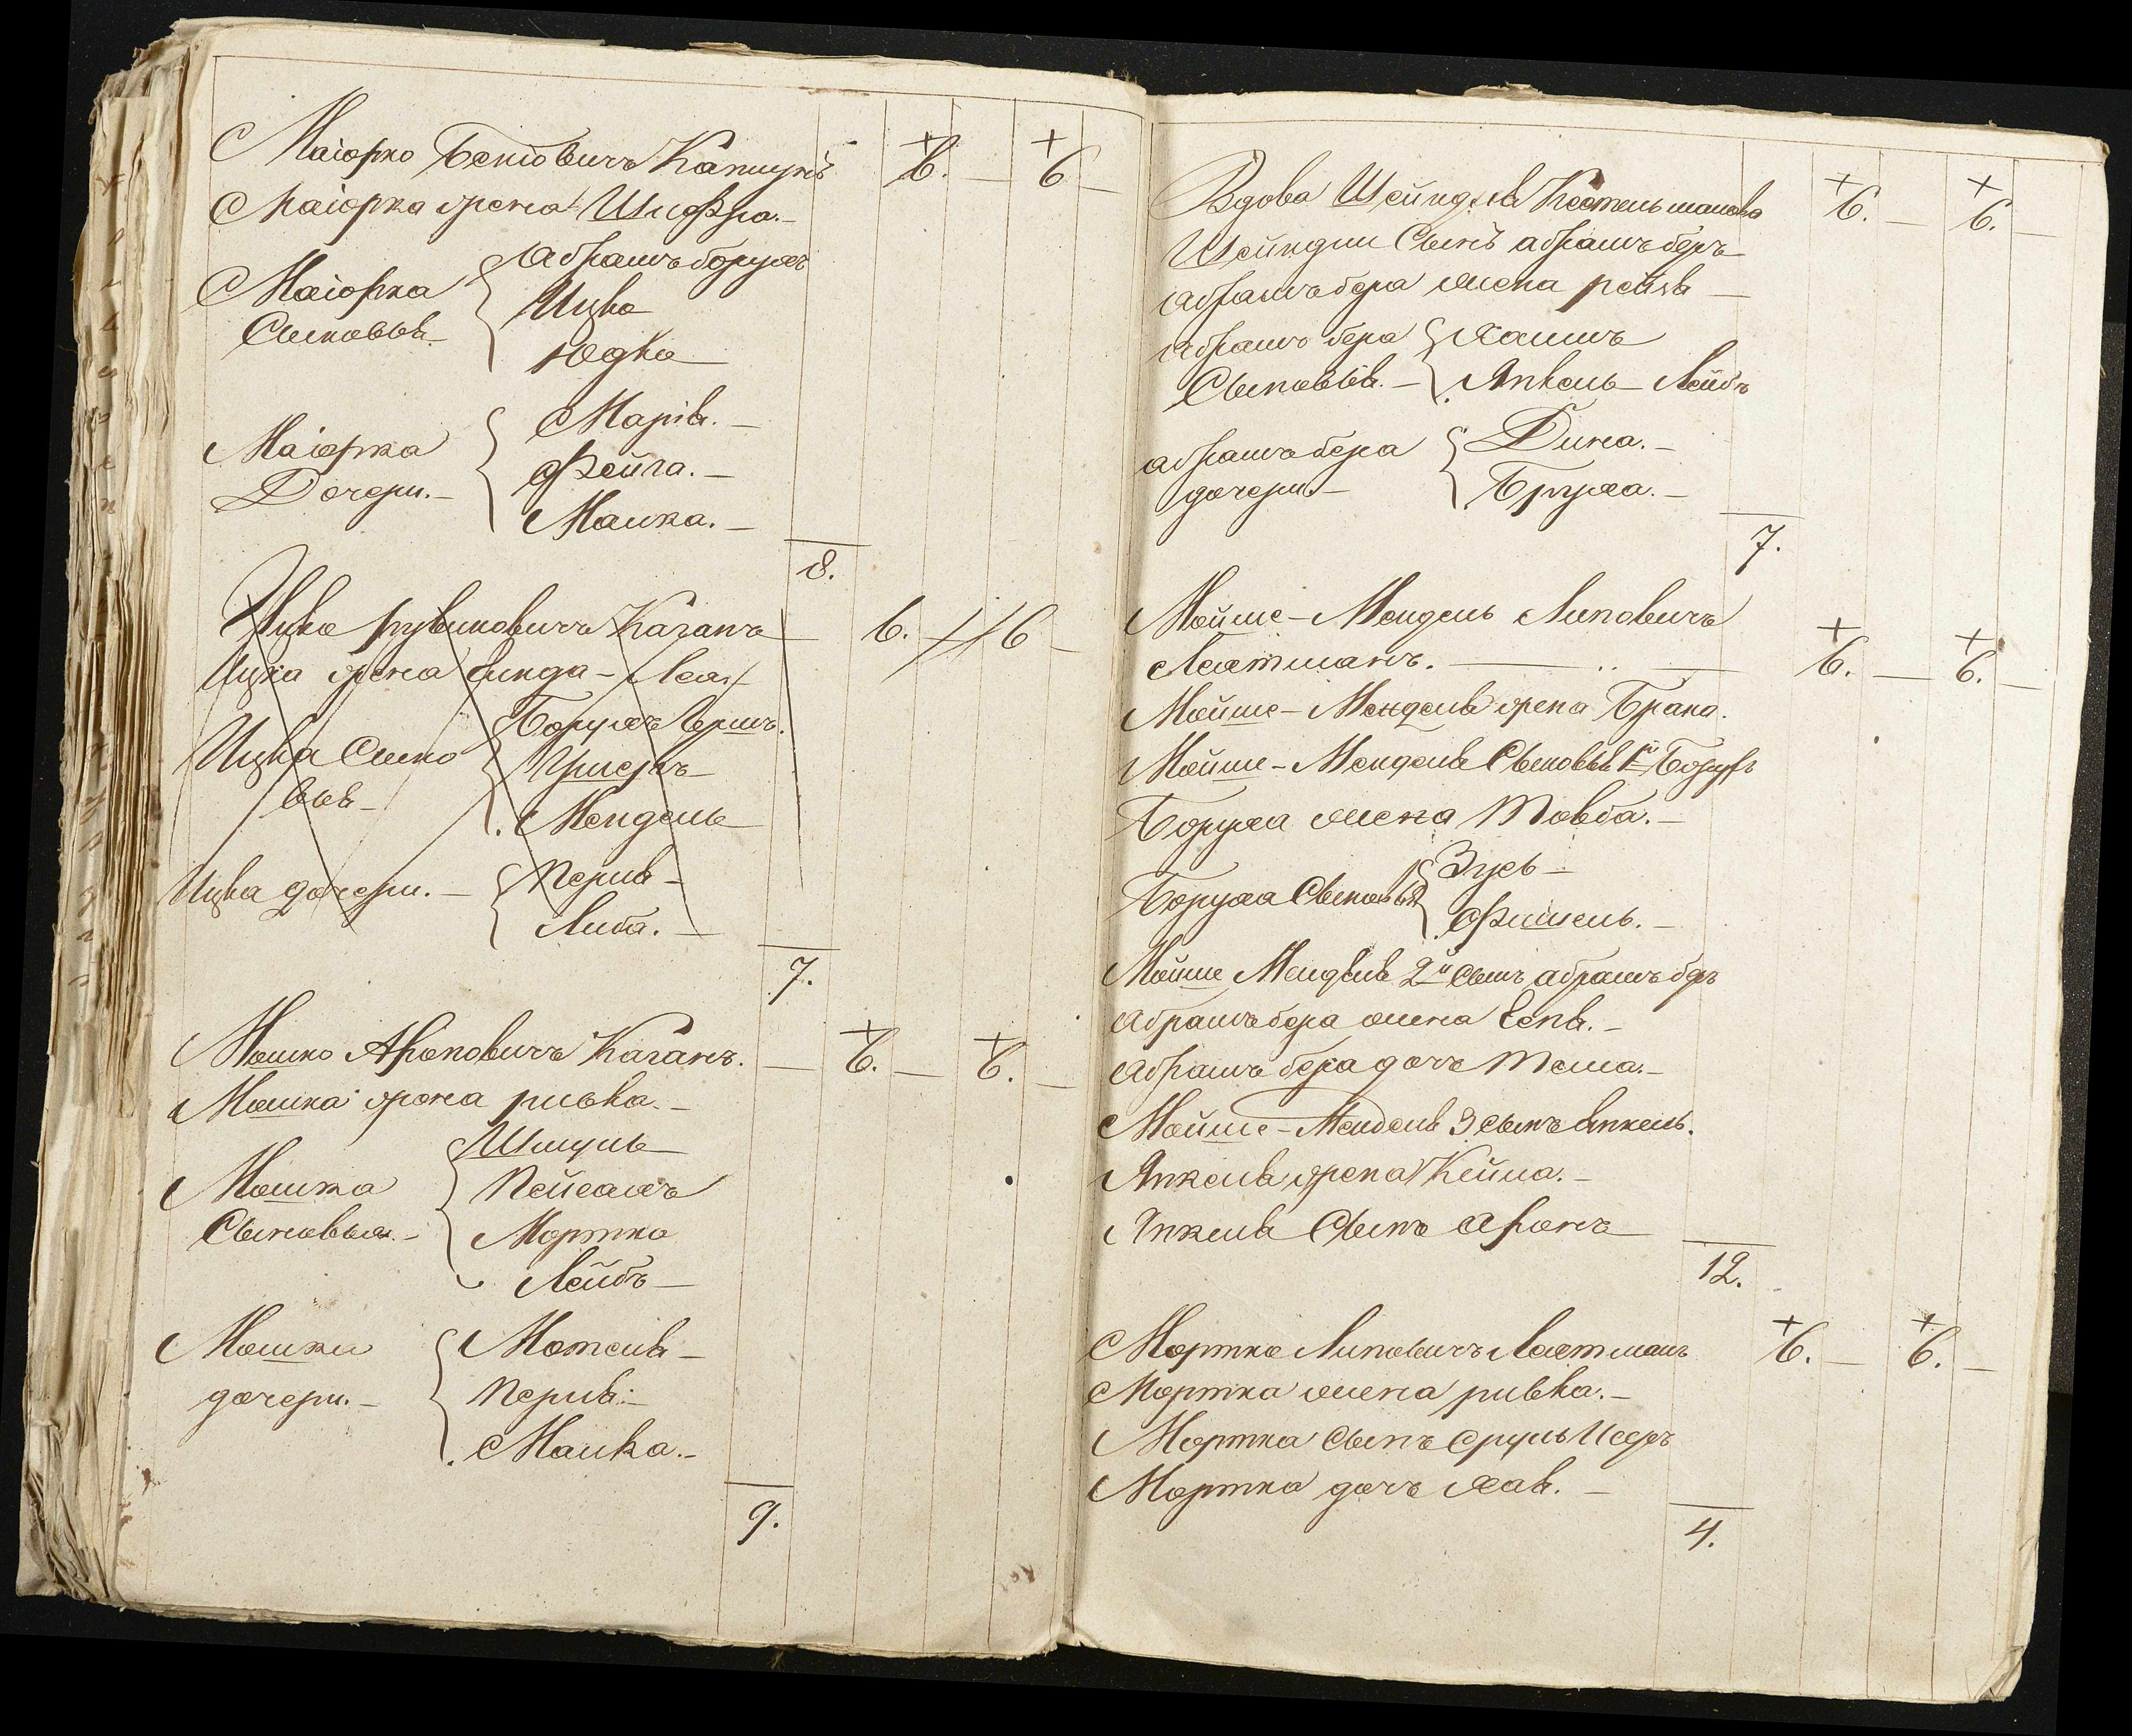 Маіорко Бенiовичъ Капицукъ + 6. — + 6 —
Маіорка жена Шифра. —
Маіорка Сыновья { Абрамъ борухъ
Ицко
Юдко
Маіорка Дочери. — { Марiя. —
Фейга. —
Малка. —
8.
Ицко рувиновичъ Каганъ — 6. — 6 —
Ицка жена Гинда - Лея
Ицка Сыно вья — { Борухъ Гершъ.
Ушеръ —
Мендель
Ицка дочери. — { Перля —
Либа. —
7.
Мошко Ароновичъ Каганъ. — + 6. — + 6. —
Мошка жена ривка. —
Мошка Сыновья. — { Шмуль
Пейсахъ
Мортко
Лейбъ —
Мошка дочери. — { Мотля —
Перля. —
Малка. —
9.
Вдова Шейндля Костельманова + 6. — + 6. —
Шейндли Сынъ абрамъ беръ —
абрамъ бера жена рейзя —
абрамъ бера Сыновья. — { Хаимъ
Янкель — Лейбъ
абрамъ бера дочери. — { Дина. —
Бруха. —
7.
Мойше - Мендель Липовичъ
Лехтманъ. — + 6. — + 6. —
Мойше - Менделя жена Брана.
Мойше - Менделя Сыновья 1й Борухъ
Боруха жена Товба. —
Боруха Сыновья { Зусь —
Фишель. —
Мойше Менделя 2й Сынъ абрамъ беръ
Абрамъ бера жена Геня. —
Абрамъ бера дочь Тема. —
Мойше - Менделя 3 сынъ Янкель.
Янкеля жена Кейла. —
Янкеля Сынъ Аронъ
12.
Мортко Липовичъ Лехтманъ + 6. — + 6. —
Мортка жена ривка. —
Мортка Сынъ Сруль Исеръ
Мортка дочь Хая. —
4.